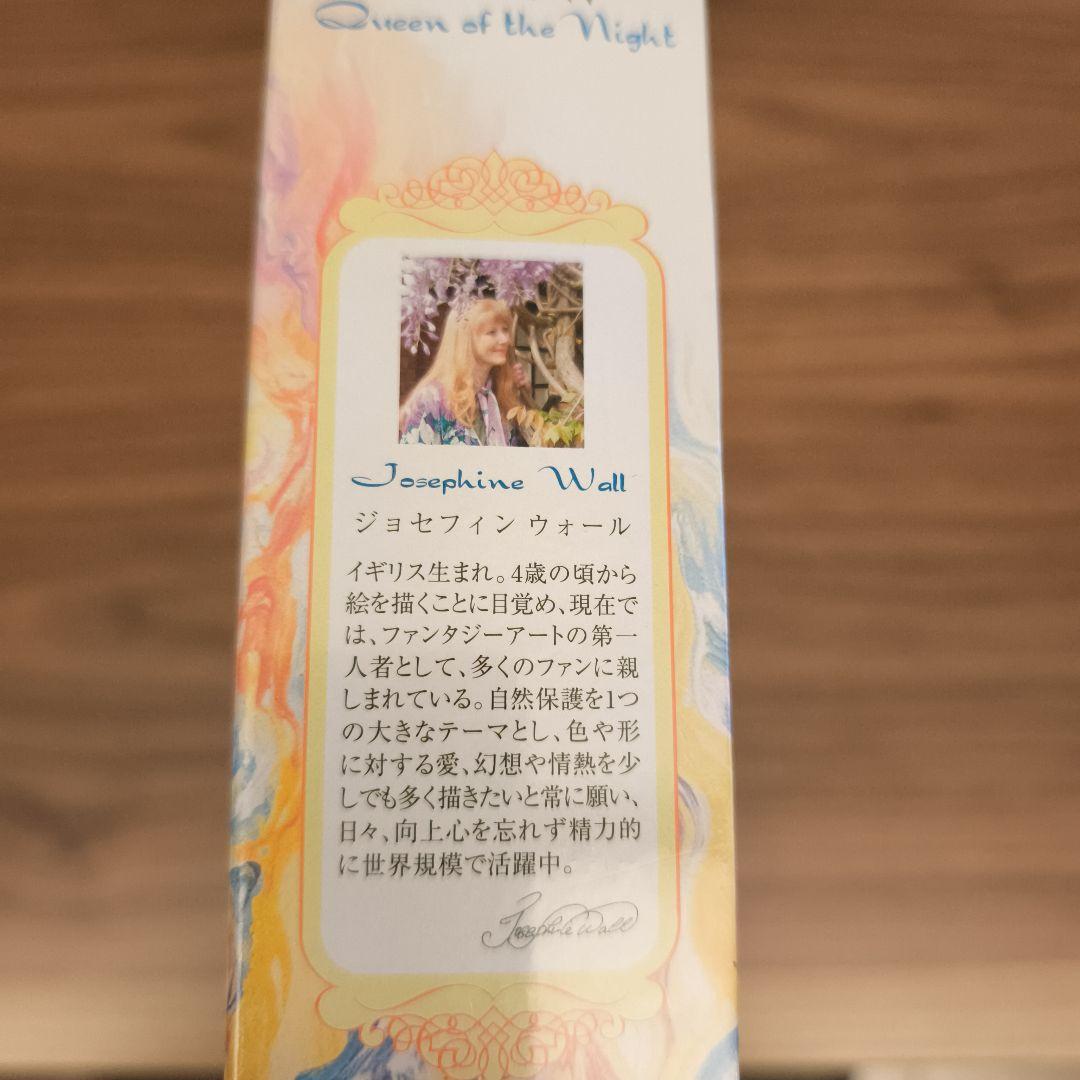 Queen of the Night
Josephine Wall
ジョセフィン ウォール
イギリス生まれ。4歳の頃から
絵を描くことに目覚め、現在で
は、ファンタジーアートの第一
人者として、多くのファンに親
しまれている。自然保護を1つ
の大きなテーマとし、色や形
に対する愛、幻想や情熱を少
しでも多く描きたいと常に願い、
日々、向上心を忘れず精力的
に世界規模で活躍中。
Josephine Wall